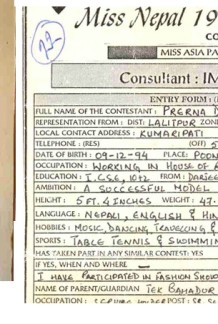 Miss Nepal 19
CO
MISS ASIA PA
Consultant : IM
ENTRY FORM : (
FULL NAME OF THE CONTESTANT : PRERNA
REPRESENTATION FROM : DIST: LALITPUR ZON
LOCAL CONTACT ADDRESS : KUMARIPATI
TELEPHONE : (RES) (OFF) 5
DATE OF BIRTH : 09-12-94 PLACE: POON
OCCUPATION : WORKING IN HOUSE OF
EDUCATION : I.CSE, 10+2 FROM : DARJEE
AMBITION : A SUCCESSFUL MODEL
HEIGHT : 5 FT. 4 INCHES WEIGHT : 47.
LANGUAGE : NEPALI, ENGLISH & HIN
HOBBIES : MOSIC, DANCING, TRAVELLING &
SPORTS : TABLE TENNIS & SWIMMIN
HAS TAKEN PART IN ANY SIMILAR CONTEST: YES
IF YES, WHEN AND WHERE
I HAVE PARTICIPATED IN FASHION SHOW
NAME OF PARENT/GUARDIAN TEK BAHADUR
OCCUPATION :